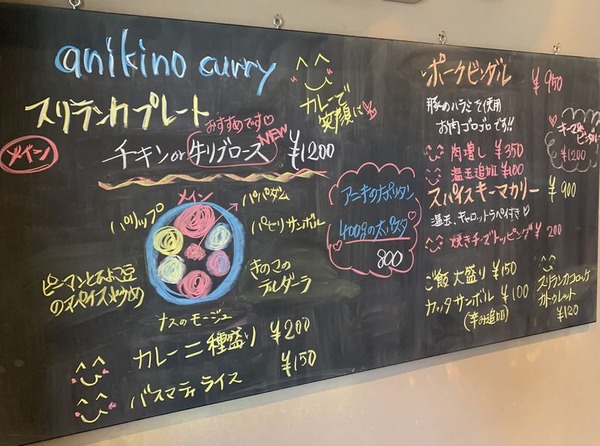 anikino curry
カレーで
笑顔に
スリランカプレート
おすすめです♡
NEW
メイン
チキン or 牛リブロース ¥1200
メイン
パパダム
パリップ
パセリサンボル
ピーマンとひよこ豆
のスパイス炒め
きのこの
デルダーラ
ナスのモージュ
カレー二種盛り ¥200
バスマティライス ¥150
アニキのナポリタン
400gの太パスタ
800
ポークビンダル ¥950
豚のハラミを使用
お肉ゴロゴロです!!
肉増し ¥350
温玉追加 ¥100
¥1200
スパイスキーマカリー ¥900
温玉、キャロットラペ付き♡
焼きチーズトッピング ¥200
ご飯大盛り ¥150
カッタサンボル ¥100
(辛み追加)
スリランカコロッケ
カトゥレット
¥120